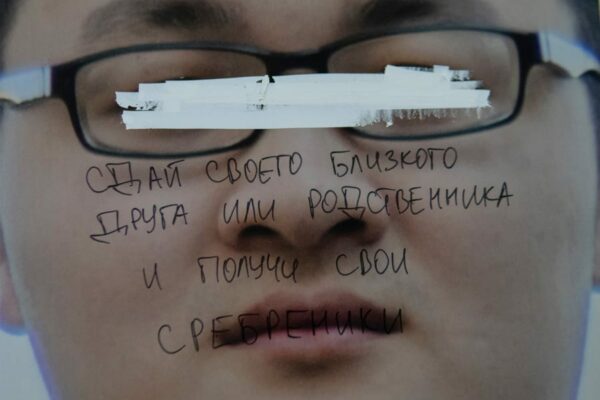 СДАЙ СВОЕГО БЛИЗКОГО
ДРУГА ИЛИ РОДСТВЕННИКА
И ПОЛУЧИ СВОИ
СРЕБРЕНИКИ